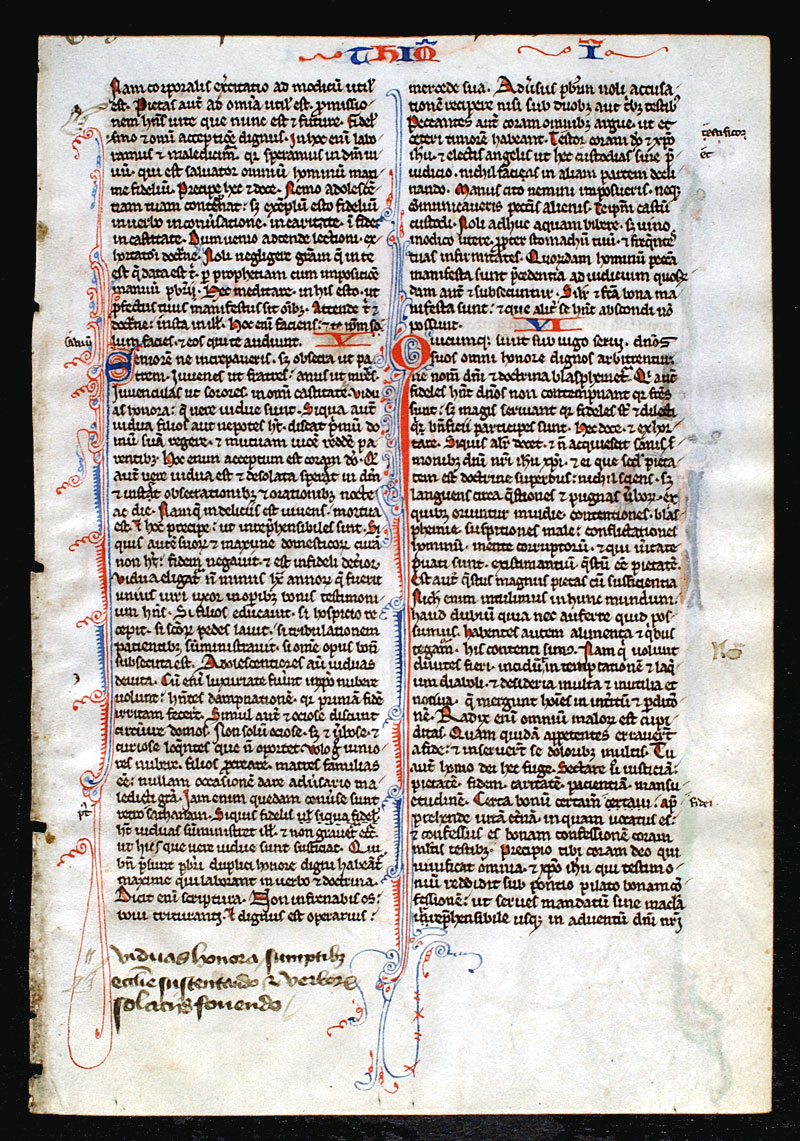 THIM̄ I
Nam corporalis exˀcitatio ad modicū utił
est. Pietas aut̄ ad om̄ia utił est. pˀmissio-
nem hn̄s vite que nunc est & future. Fidel'
sˀmo & om̄i acceptiōe dignus. In hoc eni᷑ labo-
ramus & maledicim᷒ qr̄ speramus in dm̄ ui-
uū. qui est saluator om̄iū hominū maxi
me fidelium. Precipe hec & doce. Nemo adolescē
tiam tuam contēpnat: sꝫ exēplū esto fidelium
in uerbo in conuˀsatione. in caritate. i᷑ fide
in castitate. Dum venio adtende lectioni. ex
hortatōi doctˀne. Noli negligere grām q̄ in te
est q̄ data est t̄. ꝑ prophetiam cum impositiōe
manuū pb̄rij. Hec meditare. in his esto. ut
ꝓfectus tuus manifestus sit oībꝫ. Attende t̄ &
doctˀne: insta in ill'. Hoc eni᷑ faciens: & te ip̄m sa
luum facies. & eos qui te audiunt. V
Seniorē ne increpaveris. sꝫ obsecra ut pa
trem. Juvenes ut fratres: anus ut matres.
Juvenculas ut sorores. in om̄i castitate. vidu
as honora: q̄ uere uidue sunt. Siqua aut̄
uidua filios aut nepotes ht̄. discat pˀmū do
mū suā regere. & mutuam uicē reddē pa
rentibꝫ. Hoc enim acceptum est coram dō. Q̄
aut̄ vere uidua est & desolata speret in dm̄
& instet obsecrationibꝫ & orationibꝫ nocte
ac die. Nam q̄ in deliciis est vivens. mortua
est. & hoc precipe: ut inrepˀhensibiles sint. Si
quis autē suoꝝ & maxime domesticoꝝ curā
non ht̄: fidem negauit. & est infideli deterior.
Vidua eligat᷑ nō minus lx̄ annoꝝ. q̄ fuerit
unius uiri uxor in opibꝫ bonis testimoni
um hn̄s. Si filios educauit. si hospicio re
cepit. si sc̄oꝝ pedes lauit. si tribulationem
patientibꝫ sūministrauit. si om̄e opus bon̄
subsecuta est. Adolescentiores aut̄ uiduas
devita. Cū eni᷑ luxuriate fuerint in xp̄o nubere
volunt: hn̄tes dampnationē. qr̄ primam fidē
irritam fecerūt. Simul aut̄ & ociose discunt
circuire domos. Non solū ociose. sꝫ & uˀbose. &
curiose loq̄ntes que nō oportet. Volo g̉ iunio
res nubere. filios procreare. matres familias
ēē: nullam occasionē dare aduˀsario ma
ledicti grā. Jam enim quedam conuˀse sunt
retro sathanam. Siquis fidelis ul' siqua fidel'
ht̄ viduas sūministret ill'. & non grauet᷑ ecc̄a.
ut his que vere vidue sunt sufficiat. Qui
bn̄ pˀsunt pb̄ri duplici honore digni habeant᷑
maxime qui laborant in verbo & doctrina.
Dicit eni᷑ scriptura. Non infrenabis os
bovi trituranti. & dignus est operarius
mercede sua. Aduˀsus pb̄rum noli accusa
tionē recipere nisi sub duobꝫ aut tˀbꝫ testibꝫ
Peccantes aut̄ coram omnibus argue. ut et
ceteri timorē habeant. Testor coram dō & xp̄o
ihū. & electis angelis ut hec custodias sine pˀ
iudicio. nichil faciens in aliam partem decli
nando. Manus cito nemini imposueris. neq̣
omnicaveris peccīs alienis. Te ip̄m castū
custodi. Noli adhuc aquam bibere. sꝫ vino
modico utere. propter stomachū tuū. & freq̄ntes
tuas infirmitates. Quorundam hominū pecc̄a
manifesta sunt pˀcedentia ad iudicium quos
dam aut̄ & subsecuntur. Silˀr & fc̄a bona ma
nifesta sunt: & que alit̄ se hn̄t abscondi nō
possunt. VI
Quicumq̣ sunt sub iugo serui. dn̄os
suos omni honore dignos arbitrentur
ne nom̄ dn̄i & doctrina blasphemet᷑. Q̄ aut̄
fideles hn̄t dn̄os non contempnant qr̄ fr̄es
sunt: sꝫ magis seruiant qr̄ fideles sūt & dilecti
qr̄ bn̄ficii participes sunt. Hec doce. & exhor
tare. Siquis alit̄ docet. & nō acquiescit sanis s̄
monibꝫ dn̄i nr̄i ihū xp̄i. & ei que scd̄m pieta
tem est doctrine superbus: nichil sciens. sꝫ
languens circa q̄stiones & pugnas uˀboꝝ. ex
quibꝫ oriuntur inuidie. contentiones. blas
phemie. suspitiones male: conflictationes
hominū. mente corruptorū. & qui uˀitate
pˀuati sunt. existimantiū q̄stū ēē pietatē.
Est aut̄ q̄stus magnus pietas cū sufficientia
Nich enim intulimus in hunc mundum.
haud dubiū quia nec auferre quid pos
sumus. Habentes autem alimenta & q̄bus
tegam᷑. his contenti sum᷒. Nam q̄ uolunt
diuites fieri. incidūt in temptationē & laq̄
um diaboli. & desideria multa & inutilia et
nociua. q̄ mergunt hoīes in interitū & pˀditō
nē. Radix eni᷑ omnium maloꝝ est cupi
ditas. Quam quidā appetentes erraverūt
a fide: & inseruerūt se doloribus multis. Tu
aut̄ homo dei hec fuge. Sectare uˀo iusticiā.
pietatē. fidem. caritatē. pacientiā. mansu
etudinē. Certa bonū certam̄ certaui. ap
prehende uitā et̄nā. in quam uocatus es:
& confessus es bonam confessionē coram
multis testibꝫ. Precipio tibi coram deo qui
uiuificat omnia. & xp̄o ihū qui testimo
niū reddidit sub pontio pilato bonam cō
fessionē: ut serues mandatū sine macła
irrepˀhensibile usq̣ in aduentū dn̄i nr̄i
testificor
et
fidei
viduas honora sumptibꝫ
ecclīe sustentando & verboꝝ
solaciis fovendo